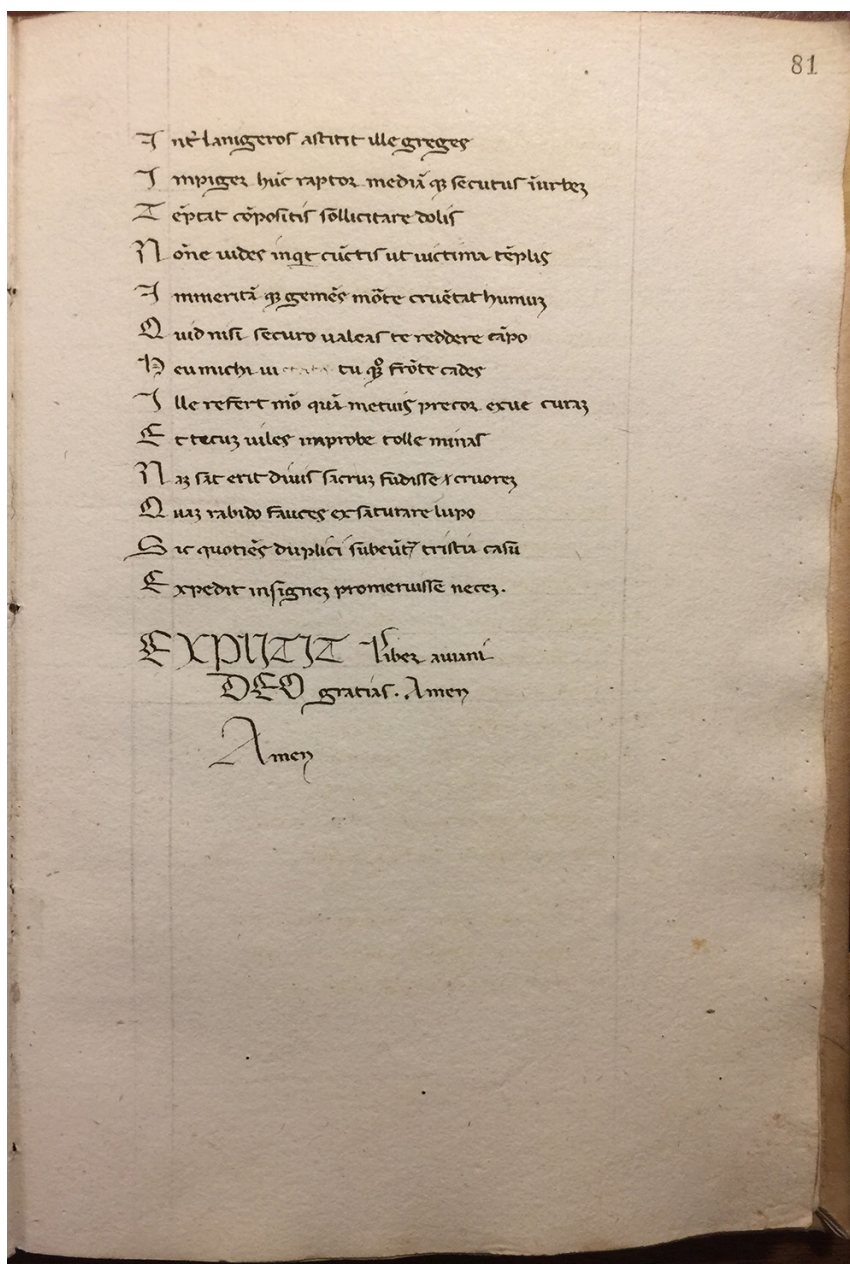 81
Int̃ lanigeros astitit ille greges
Impiger hũc raptor mediã qȝ secutus ĩ urbeȝ
Tẽptat cõpositis sollicitare dolis
Nõne uides inqt cũctis ut uictima tẽplis
Immeritã qȝ gemẽs mõte cruẽtat humuȝ
Quid nisi securo ualeas te reddere cãpo
Heu michi ui tu qȝ frõte cades
Ille refert mõ quã metuis precor exue curaȝ
Et tecuȝ uiles improbe tolle minas
Naȝ sat erit diuis sacruȝ fũdisse cruoreȝ
Quaȝ rabido fauces exsaturare lupo
Sic quotiẽs duplici subeũt tristia casũ
Expedit insigneȝ promeruisse neceȝ.
EXPLITIT Liber auiani
DEO gratias. Amen
Amen